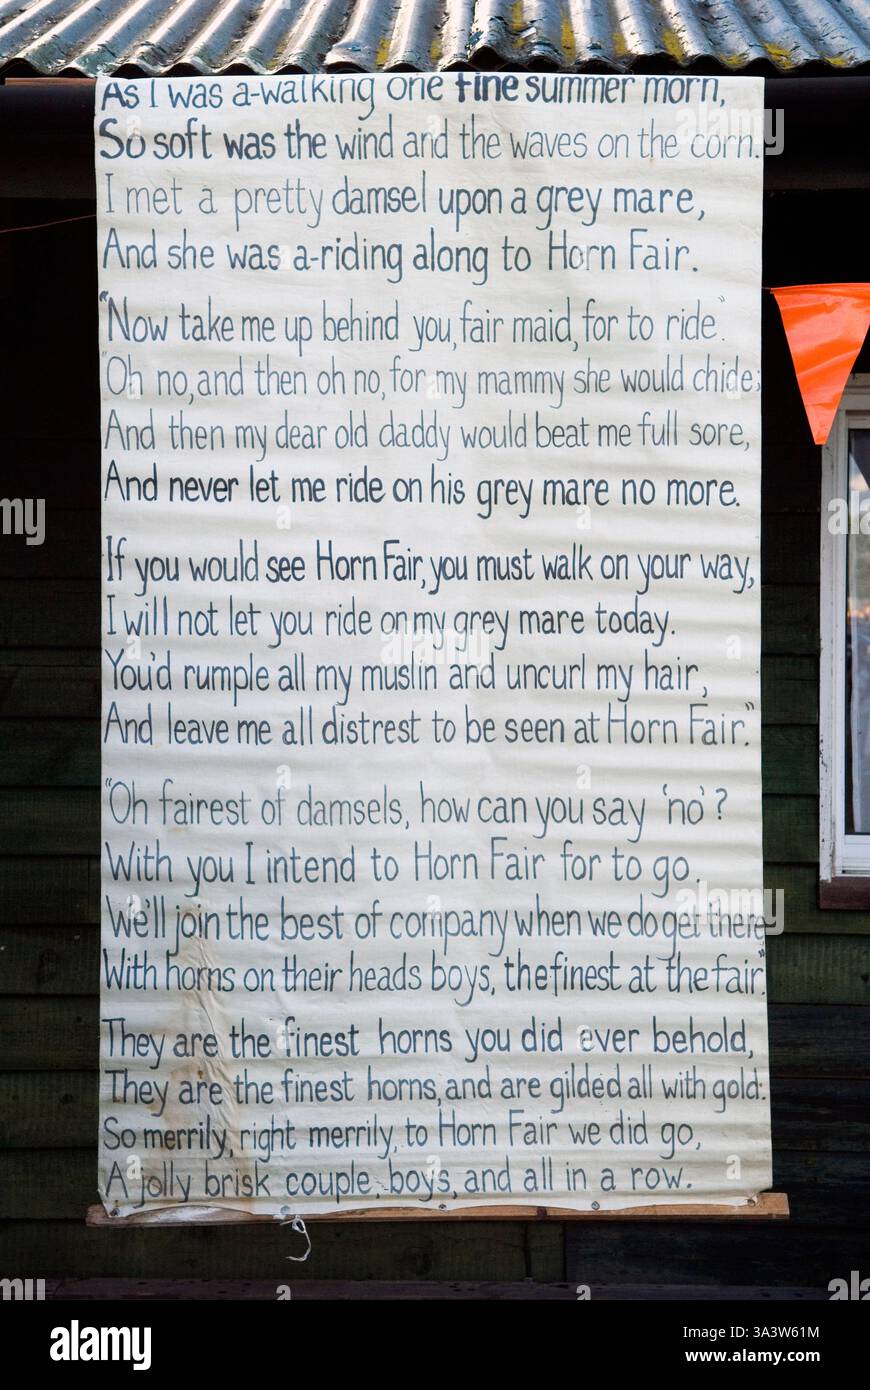 As I was a-walking one fine summer morn,
So soft was the wind and the waves on the corn.
I met a pretty damsel upon a grey mare,
And she was a-riding along to Horn Fair.
"Now take me up behind you, fair maid, for to ride".
"Oh no, and then oh no, for my mammy she would chide;
And then my dear old daddy would beat me full sore,
And never let me ride on his grey mare no more.
If you would see Horn Fair, you must walk on your way,
I will not let you ride on my grey mare today.
You'd rumple all my muslin and uncurl my hair,
And leave me all distrest to be seen at Horn Fair."
"Oh fairest of damsels, how can you say 'no'?
With you I intend to Horn Fair for to go.
We'll join the best of company when we do get there
With horns on their heads boys, the finest at the fair."
They are the finest horns you did ever behold,
They are the finest horns, and are gilded all with gold:
So merrily, right merrily, to Horn Fair we did go,
A jolly brisk couple, boys, and all in a row.
alamy
Image ID: 3A3W61M
www.alamy.com